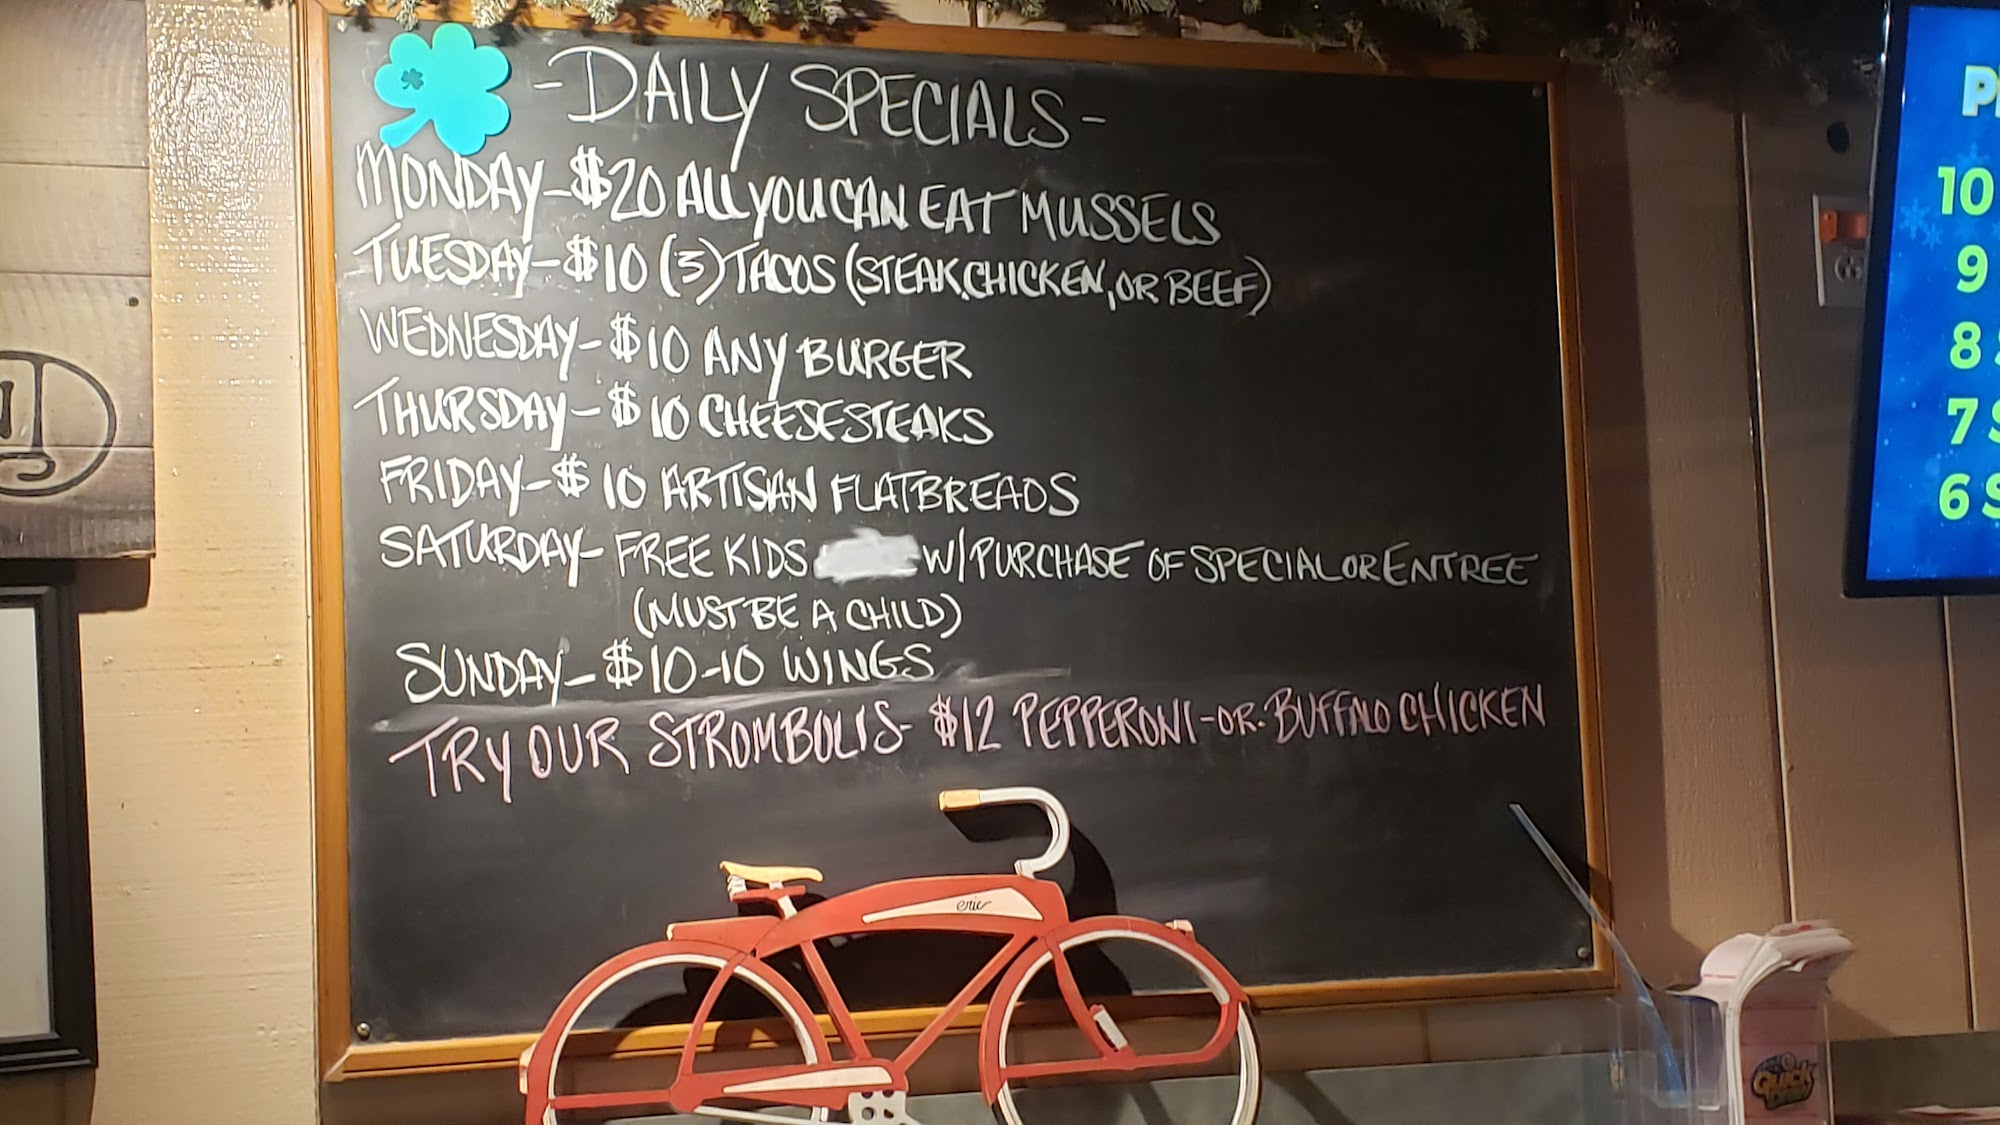 -DAILY SPECIALS-
MONDAY-$20 ALL YOU CAN EAT MUSSELS
TUESDAY-$10 (3) TACOS (STEAK, CHICKEN, OR BEEF)
WEDNESDAY-$10 ANY BURGER
THURSDAY-$10 CHEESESTEAKS
FRIDAY-$10 ARTISAN FLATBREADS
SATURDAY-FREE KIDS W/PURCHASE OF SPECIAL OR ENTREE
(MUST BE A CHILD)
SUNDAY-$10-10 WINGS
TRY OUR STROMBOLIS-$12 PEPPERONI-OR-BUFFALO CHICKEN
eric
10
9
8
7
6
Quick